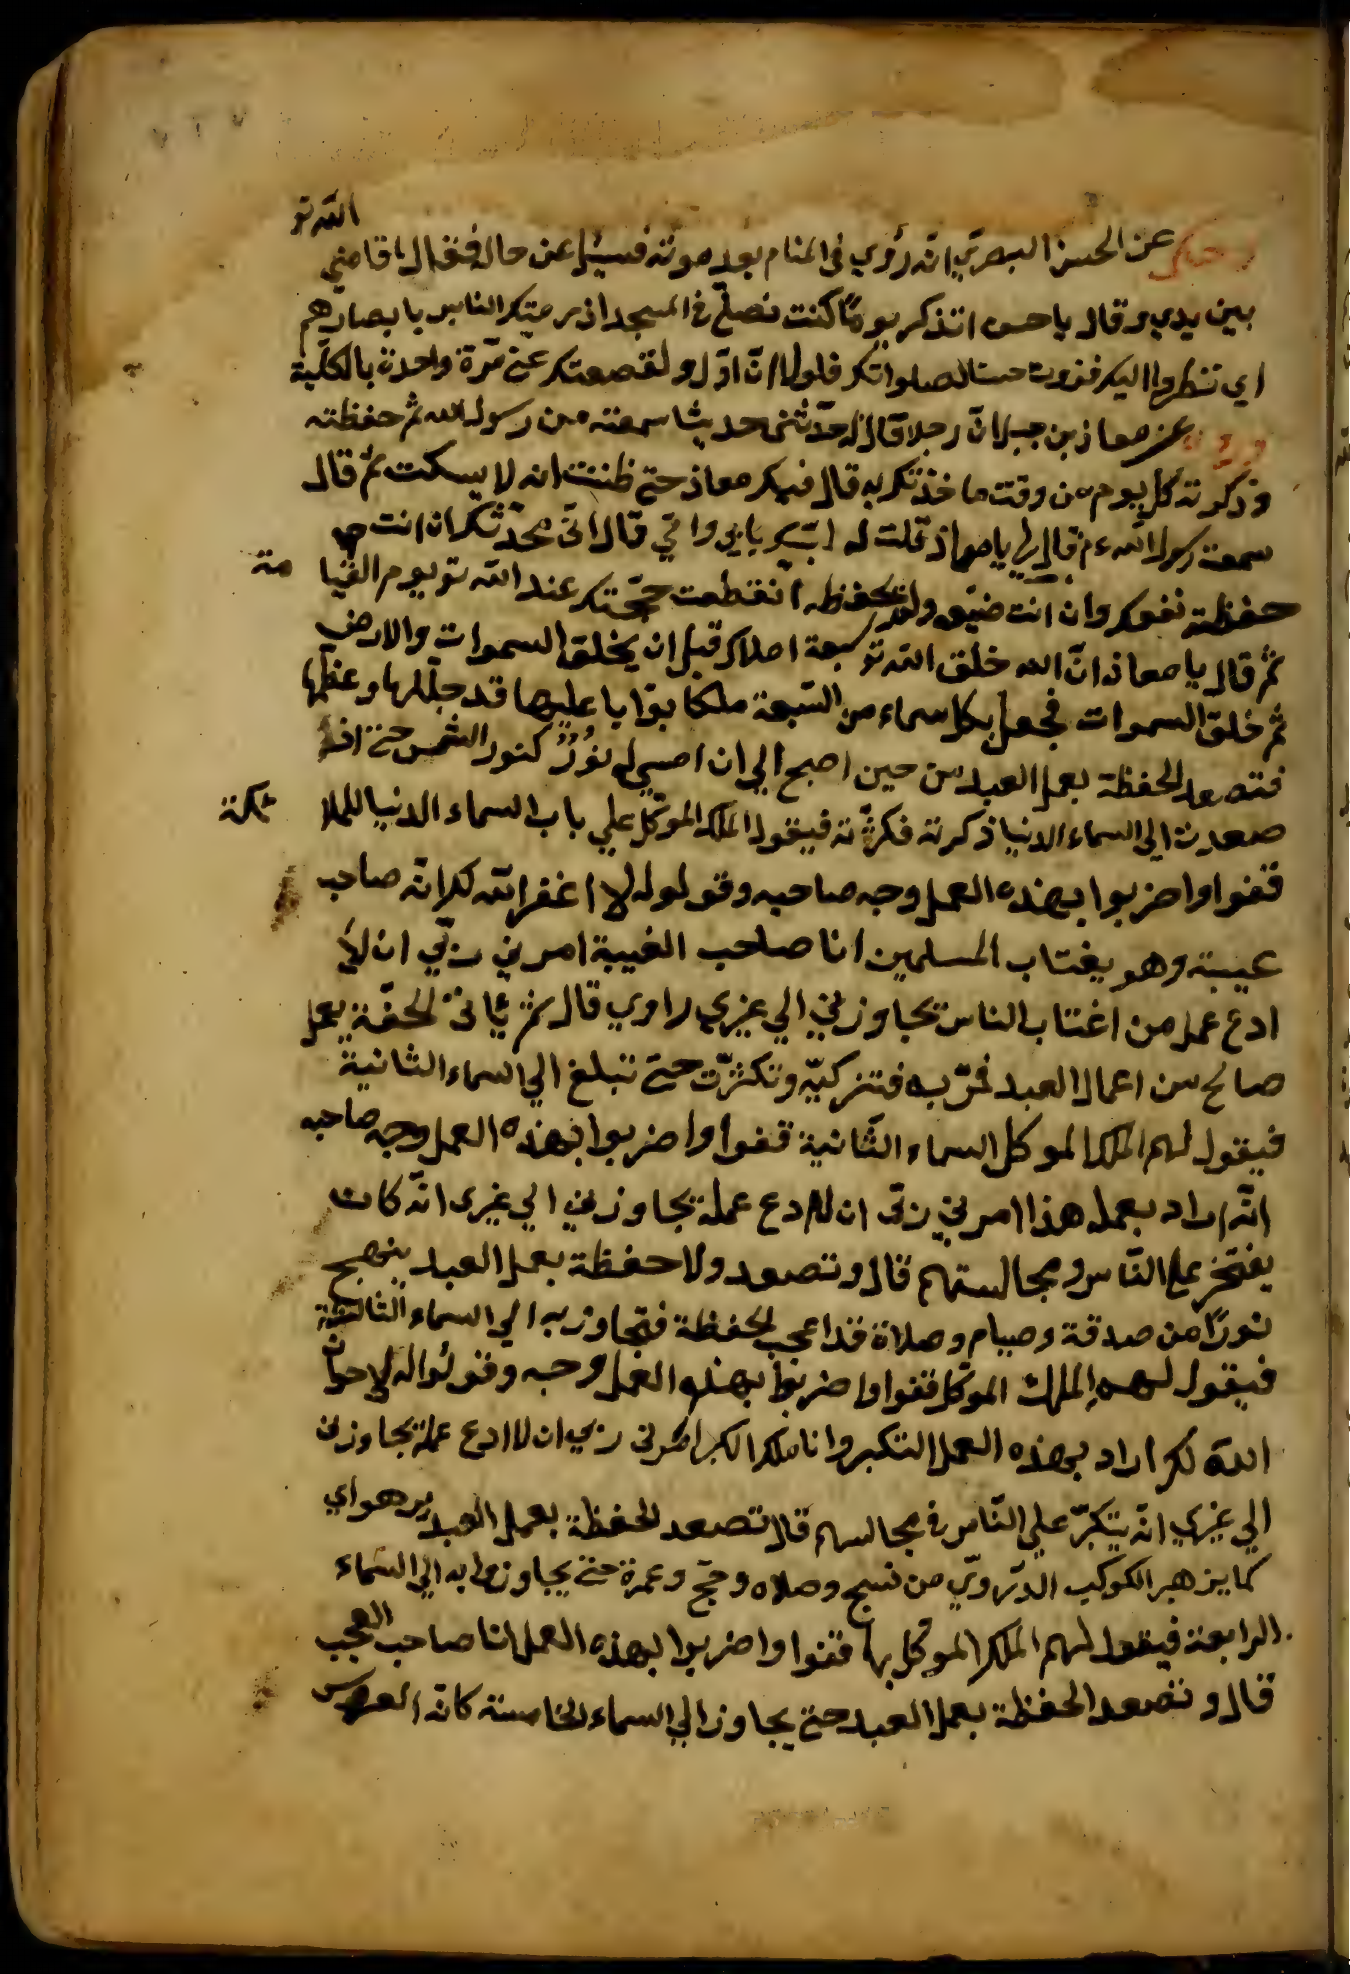 الله تو
حكى عن الحسن البصري انه رؤي في المنام بعد موته فسئل عن حاله فقال اقامني
بين يديه وقال يا حسن اتذكر يوما كنت تصلي في المسجد اذ رمقك الناس بابصارهم
اي تنظروا اليك فزدت حسنا لصلواتك فلولا ان اول ولقصعتك عني مرة واحدة بالكلية
وروي عن معاذ بن جبل ان رجلا قال له حدثني حديثا سمعته من رسول الله ثم حفظته
وذكرته كل يوم من وقت ما حدثك به قال فبكى معاذ حتى ظننت انه لا يسكت ثم قال
سمعت رسول الله عم قال لي يا معاذ قلت له لبيك بابي وامي قال اني محدثك ان انت
حفظته نفعك وان انت ضيعه ولم تحفظه انقطعت حجتك عند الله تو يوم القيا مة
ثم قال يا معاذ ان الله خلق الله تو سبعة املاك قبل ان يخلق السموات والارض
ثم خلق السموات فجعل بكل سماء من السبعة ملكا بوابا عليها قد جللها وعظمها
فتصعد الحفظة بعمل العبد من حين اصبح الي ان امسي له نور كنور الشمس حتى اذا
صعدت الي السماء الدنيا ذكرته فكثرته فيقول الملك الموكل علي باب السماء الدنيا للملا ئكة
قفوا واضربوا بهذه العمل وجه صاحبه وقولوله لا غفر الله لك انه صاحب
غيبة وهو يغتاب المسلمين انا صاحب الغيبة امرني ربي ان لا
ادع عمل من اغتاب الناس يجاوزني الي غيري راوي قال ثم يأتى الحفة بعمل
صالح من اعمال العبد فمر به فتزكيه وتكثرت حتى تبلغ الي السماء الثانية
فيقول لهم الملك الموكل السماء الثانية قفوا واضربوا بهذه العمل وجه صاحبه
انه اراد بعمله هذا امرني ربى ان لا ادع عمله يجاوزني الي غيرى انه كان
يفتخر على الناس ومجالستهم قال وتصعد ولا حفظة بعمل العبد ينهج
نورا من صدقة وصيام وصلاة قد اعجب الحفظة فتجاوز به الي السماء الثالثة
فيقول لهم الملك الموكل قفوا واضربوا بهذه العمل وجه وقولوا له لا
الله لك اراد بهذه العمل التكبر وانا ملك الكبر امرنى ربي ان لا ادع عمله يجاوزنى
الي غيري انه يتكبر علي الناس في مجالسهم قال تصعد الحفظة بعمل العبد يزهو اي
كما يزهر الكوكب الدروي من تسبيح وصلاه وحج وعمرة حتى يجاوزوا به الي السماء
الرابعة فيقول لهم الملك الموكل بها قفوا واضربوا بهذه العمل انا صاحب العجب
قال وتصعد الحفظة بعمل العبد حتى يجاوز الي السماء الخامسة كانه العروس